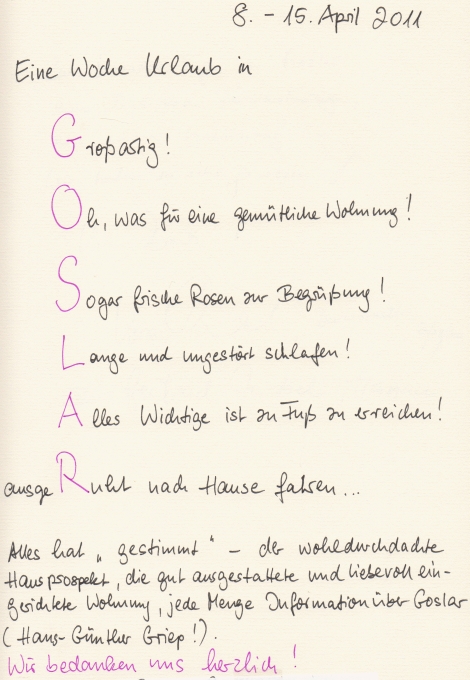 8. - 15. April 2011
Eine Woche Urlaub in
Großartig!
Oh, was für eine gemütliche Wohnung!
Sogar frische Rosen zur Begrüßung!
Lange und ungestört schlafen!
Alles Wichtige ist zu Fuß zu erreichen!
ausgeRuht nach Hause fahren...
Alles hat „gestimmt" - der wohldurchdachte
Hausprospekt, die gut ausgestattete und liebevoll ein-
gerichtete Wohnung, jede Menge Information über Goslar
(Hans-Günther Griep!).
Wir bedanken uns herzlich!